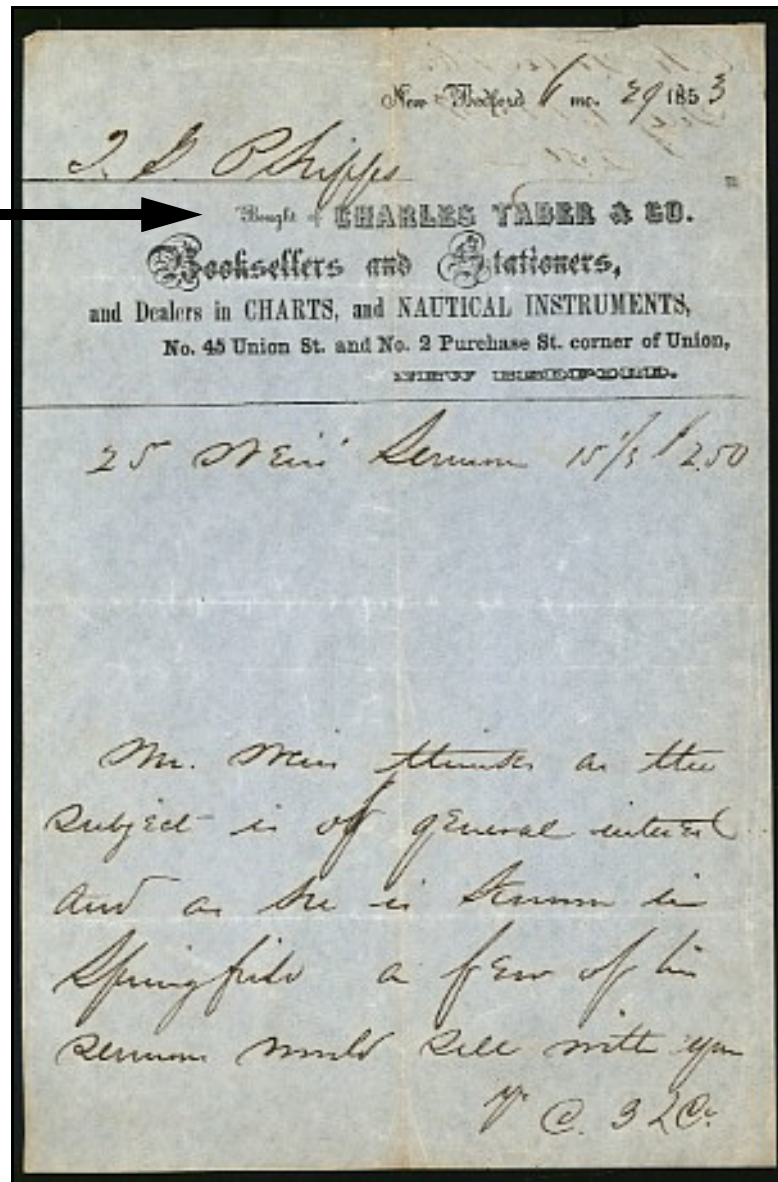 New Bedford 6 mo. 29 1853
Phipps
Bought of CHARLES TABER & CO.
Booksellers and Stationers,
and Dealers in CHARTS, and NAUTICAL INSTRUMENTS,
No. 45 Union St. and No. 2 Purchase St. corner of Union,
NEW BEDFORD.
25 Weiss' Sermon 2.50
Mr. Weiss thinks as the
subject is of general interest
and as he is known in
Springfield a few of his
sermons would sell with you